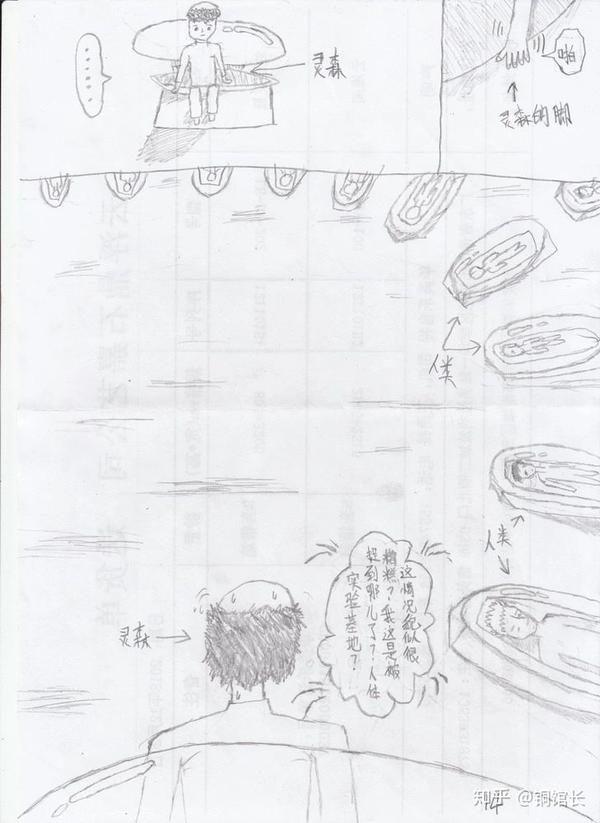 ……
灵森
啪
灵森的脚
人类
人类
这情况貌似很
糟糕？我这是被
捉到那儿了？人体
实验基地？
灵森
14
知乎 @铜馆长